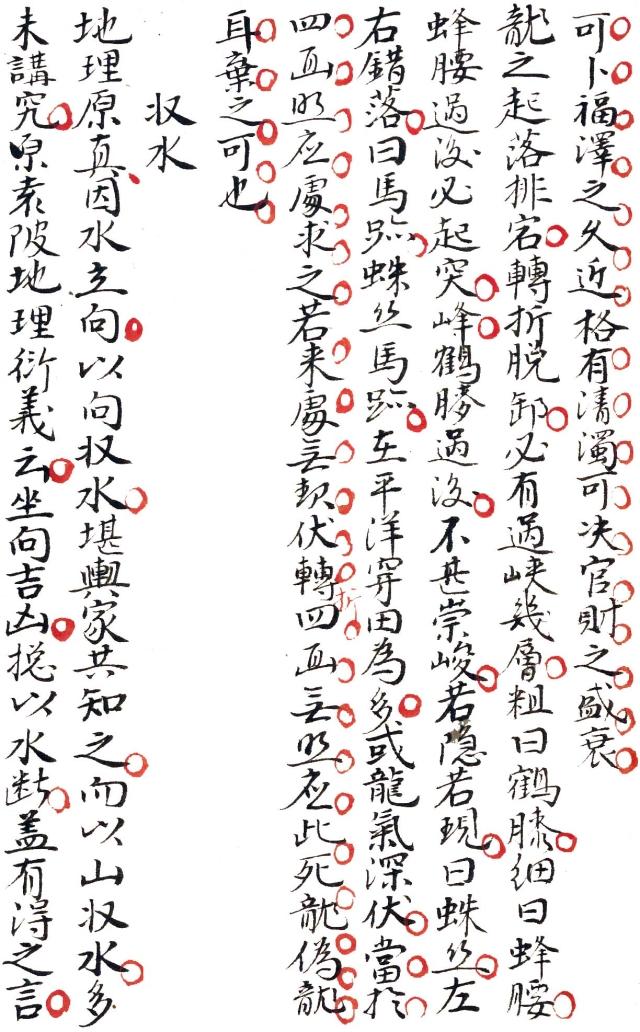 可卜福澤之久近格有清濁可决官財之盛衰
龍之起落排宕轉折脱卸必有過峽幾層粗曰鶴膝細曰蜂腰
蜂腰過後必起突峰鶴膝過後不甚崇峻若隐若現曰蛛丝左
右錯落曰馬跡蛛丝馬跡在平洋穿田為多或龍氣深伏當扵
四面照应處求之若来處無起伏轉折四面無照应此死龍偽龍
耳棄之可也
収水
地理原真因水立向以向収水堪輿家共知之而以山収水多
未講究原袁陂地理衍義云坐向吉凶揔以水断盖有淂之言